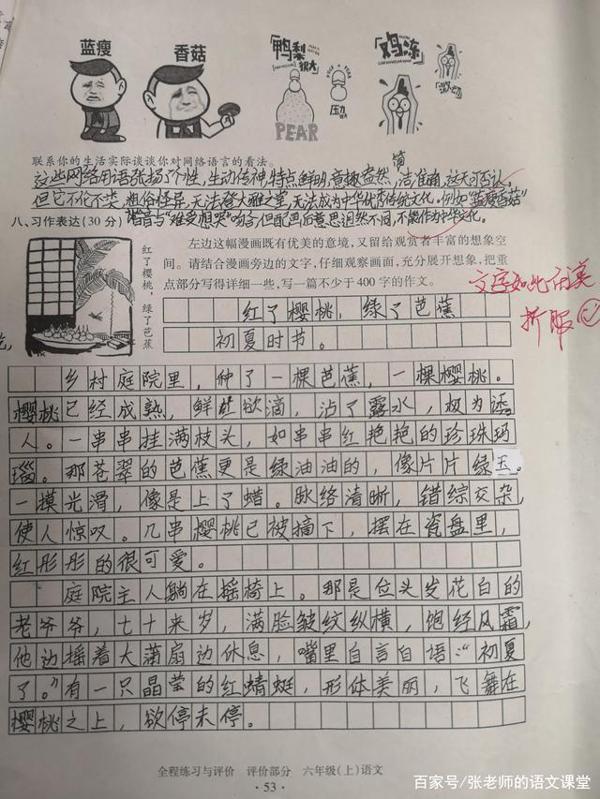 蓝瘦
香菇
鸭梨
很大
压力
PEAR
鸡冻
激动
联系你的生活实际谈谈你对网络语言的看法。
这些网络用语张扬了个性，生动传神，特点鲜明，意趣盎然，简洁准确，这无可否认，
但它不伦不类，粗俗怪异，无法登大雅之堂，无法成为中华优秀传统文化。例如“蓝瘦香菇”
谐音与“难受想哭”吻合但配画的意思迥然不同，不能作为中华文化。
八、习作表达(30分)
左边这幅漫画既有优美的意境，又留给观赏者丰富的想象空
间。请结合漫画旁边的文字，仔细观察画面，充分展开想象，把重
点部分写得详细一些，写一篇不少于400字的作文。
红了樱桃，绿了芭蕉
文字如此的美
折服
红了樱桃，绿了芭蕉
初夏时节。
乡村庭院里，种了一棵芭蕉，一棵樱桃。
樱桃已经成熟，鲜红欲滴，沾了露水，极为诱
人。一串串挂满枝头，如串串红艳艳的珍珠玛
瑙。那苍翠的芭蕉更是绿油油的，像片片绿玉。
一摸光滑，像是上了蜡。脉络清晰，错综交杂，
使人惊叹。几串樱桃已被摘下，摆在瓷盘里，
红彤彤的很可爱。
庭院主人躺在摇椅上。那是位头发花白的
老爷爷，七十来岁，满脸皱纹纵横，饱经风霜，
他边摇着大蒲扇边休息，嘴里自言自语：“初夏
了。”有一只晶莹的红蜻蜓，形体美丽，飞舞在
樱桃之上，欲停未停。
全程练习与评价 评价部分 六年级(上)语文
·53·
百家号/张老师的语文课堂